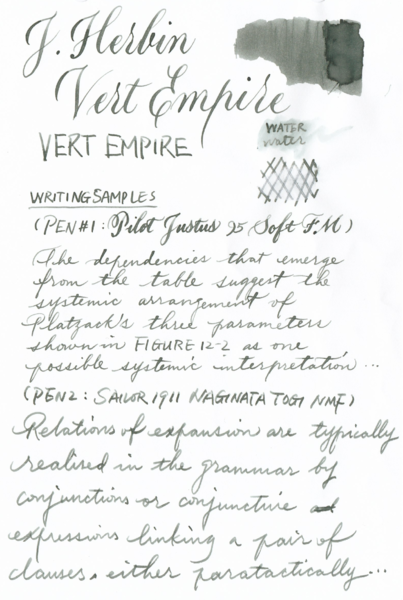 J. Herbin
Vert Empire
VERT EMPIRE
WATER
water
WRITING SAMPLES
(PEN #1: Pilot Justus 95 Soft F.M)
The dependencies that emerge
from the table suggest the
systemic arrangement of
Platzack's three parameters
shown in FIGURE 12-2 as one
possible systemic interpretation...
(PEN 2: SAILOR 1911 NAGINATA TOGI NMF)
Relations of expansion are typically
realised in the grammar by
conjunctions or conjunctive
expressions linking a pair of
clauses, either paratactically...